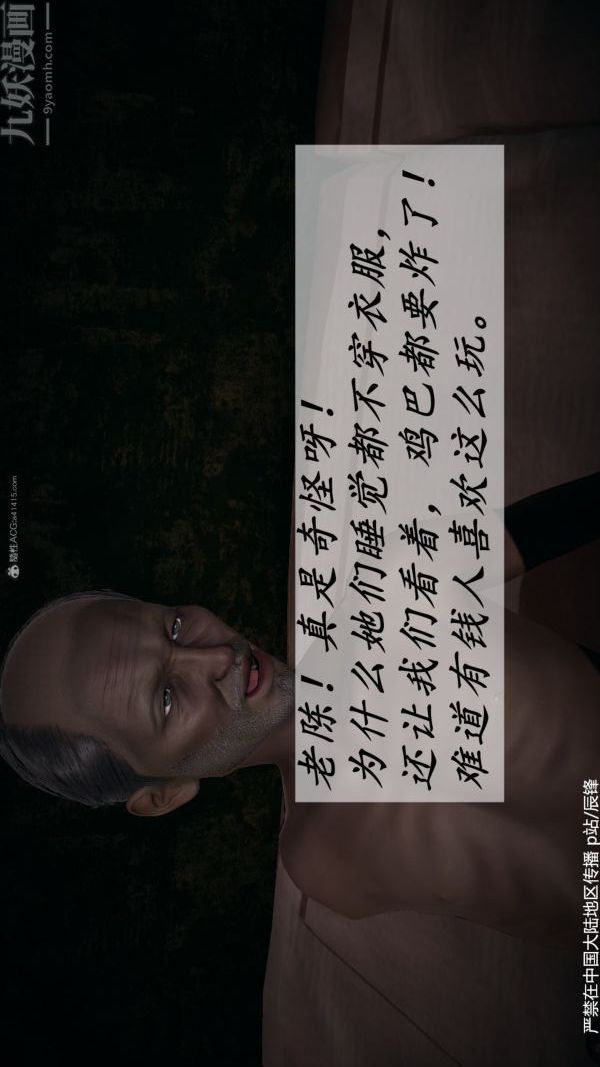 严禁在中国大陆地区传播 p站/辰锋
老陈！真是奇怪呀！
为什么她们睡觉都不穿衣服，
还让我们看着，鸡巴都要炸了！
难道有钱人喜欢这么玩。
九妖漫画
9yaomh.com